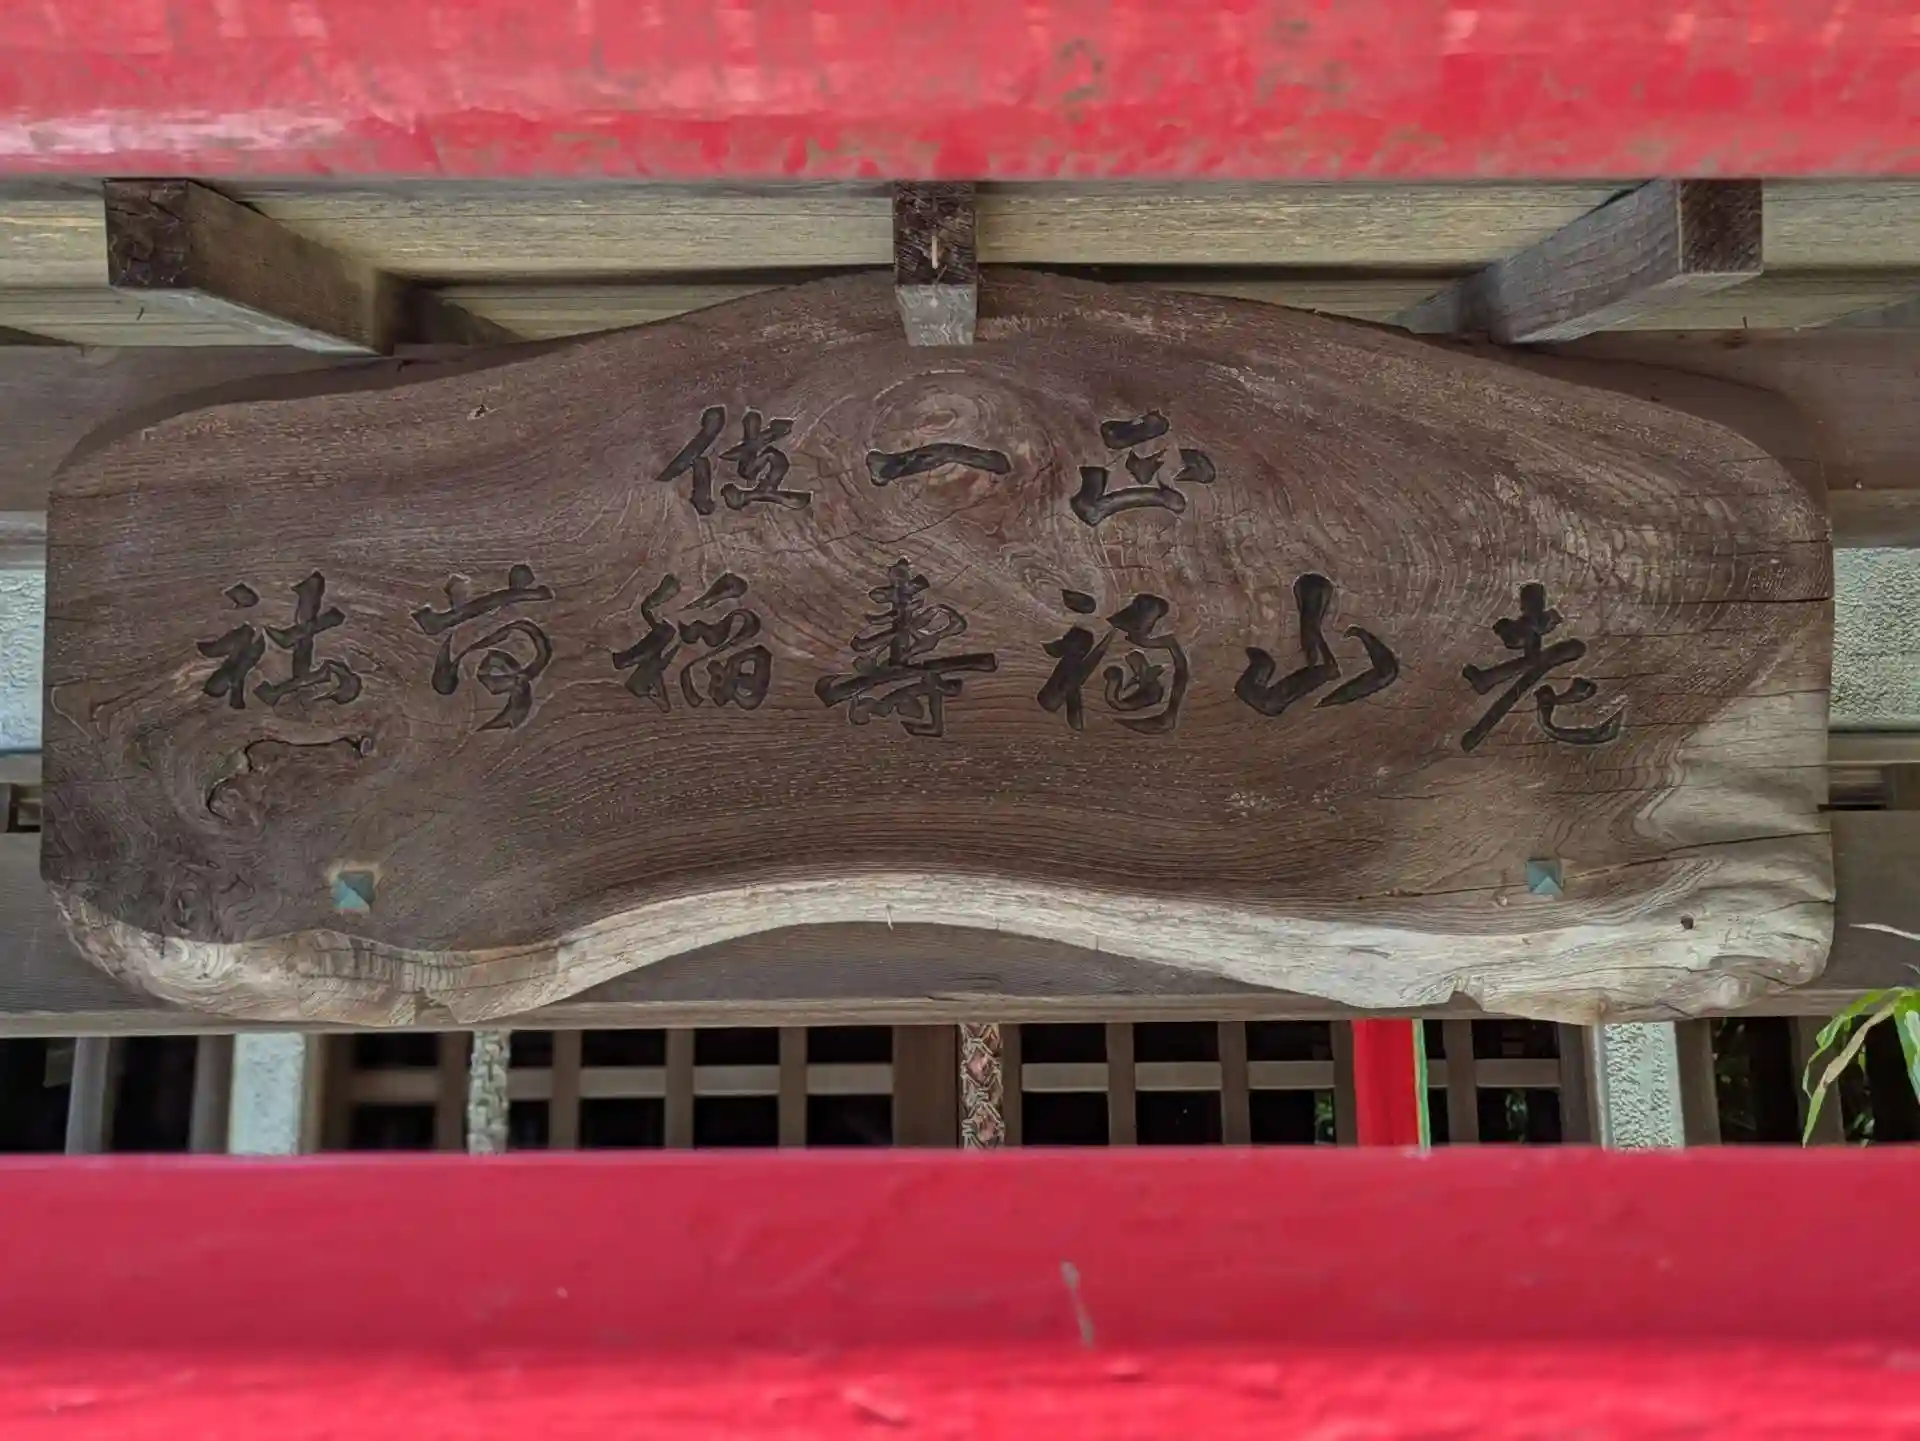 正一位
老山福壽稲荷社